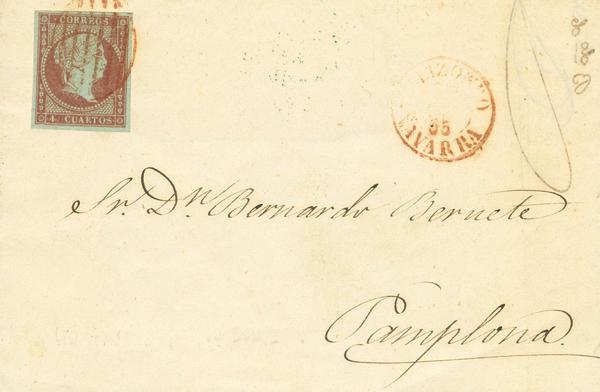 CORREOS
4 CUARTOS
LIZONDO
55
NAVARRA
Sr. Dn. Bernardo Bernete
Pamplona.